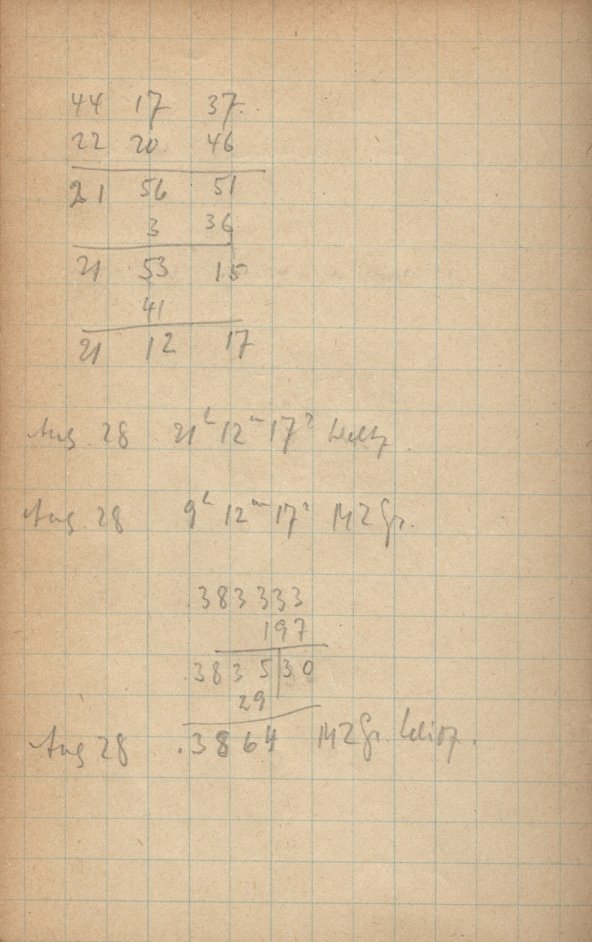 44 17 37
22 20 46
21 56 51
3 36
21 53 15
41
21 12 17
Aug. 28 21h 12m 17s Weltz.
Aug. 28 9h 12m 17s M Z Gr.
.383333
197
.3835|30
29
Aug 28 .3864 M Z Gr.